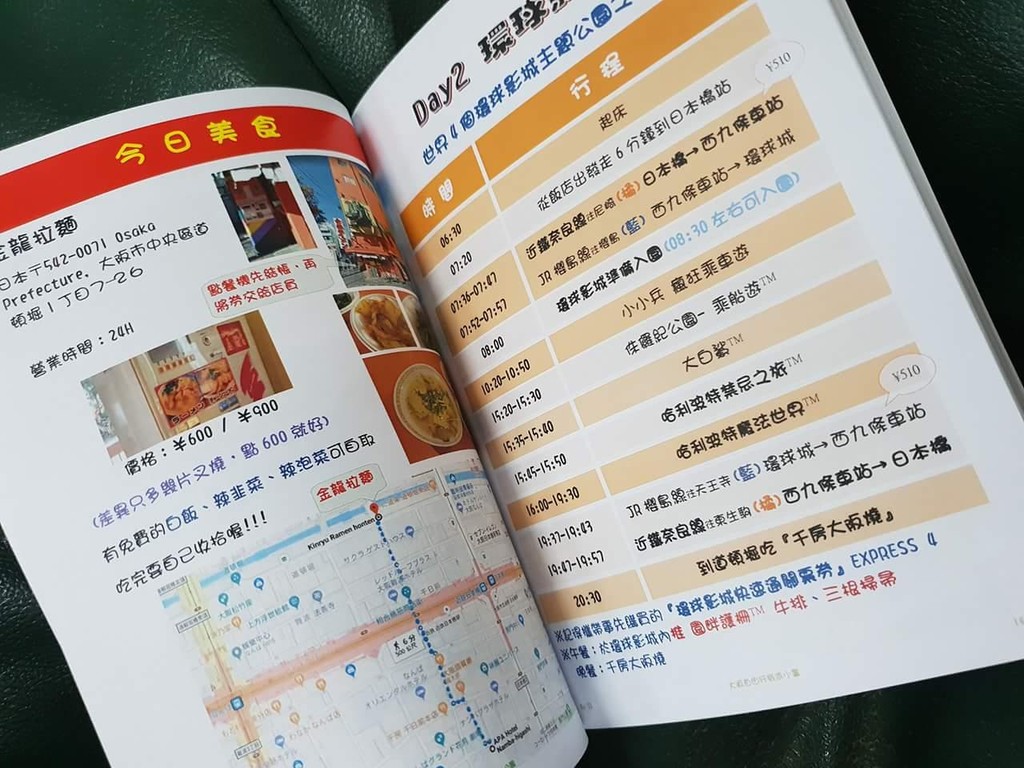 今日美食
金龍拉麵
日本〒542-0071 Osaka
Prefecture, 大阪市中央區道
頓堀1丁目7-26
點餐機先結帳，再
將券交給店員
營業時間：24H
價格：¥600 / ¥900
(差異只多幾片叉燒，點 600 就好)
有免費的白飯、辣韭菜、辣泡菜可自取
吃完要自己收拾喔!!!
金龍拉麵
Kinryu Ramen honten
6 分
500 公尺
APA Hotel
Namba-higashi
Day2 環球
世界 4 個環球影城主題公園之
時間 行程
06:30 起床
07:20 從飯店出發走 6 分鐘到日本橋站
¥510
07:36-07:47 近鐵奈良線往尼崎(橘) 日本橋→西九條車站
07:52-07:57 JR 櫻島線往櫻島(藍) 西九條車站→環球城
08:00 環球影城準備入園(08:30 左右可入園)
10:20-10:50 小小兵 瘋狂乘車遊
15:20-15:30 侏儸紀公園- 乘船遊™
15:35-15:40 大白鯊™
15:45-15:50 哈利波特禁忌之旅™
16:00-19:30 哈利波特魔法世界™
¥510
19:37-19:43 JR 櫻島線往天王寺(藍) 環球城→西九條車站
19:47-19:57 近鐵奈良線往東生駒(橘) 西九條車站→日本橋
20:30 到道頓堀吃『千房大阪燒』
※記得攜帶事先購買的『環球影城快速通關票券』EXPRESS 4
※午餐：於環球影城內推 園畔護柵™ 牛排、三根掃帚
晚餐：千房大阪燒